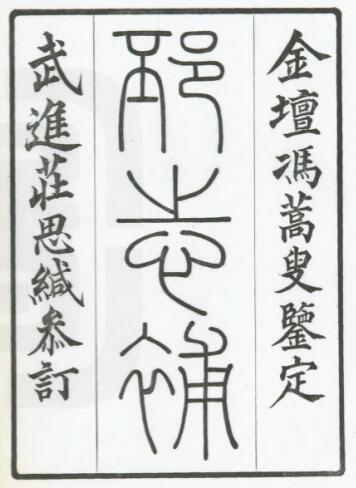 金壇馮蒿叟鑒定
邳志補
武進莊思緘參訂